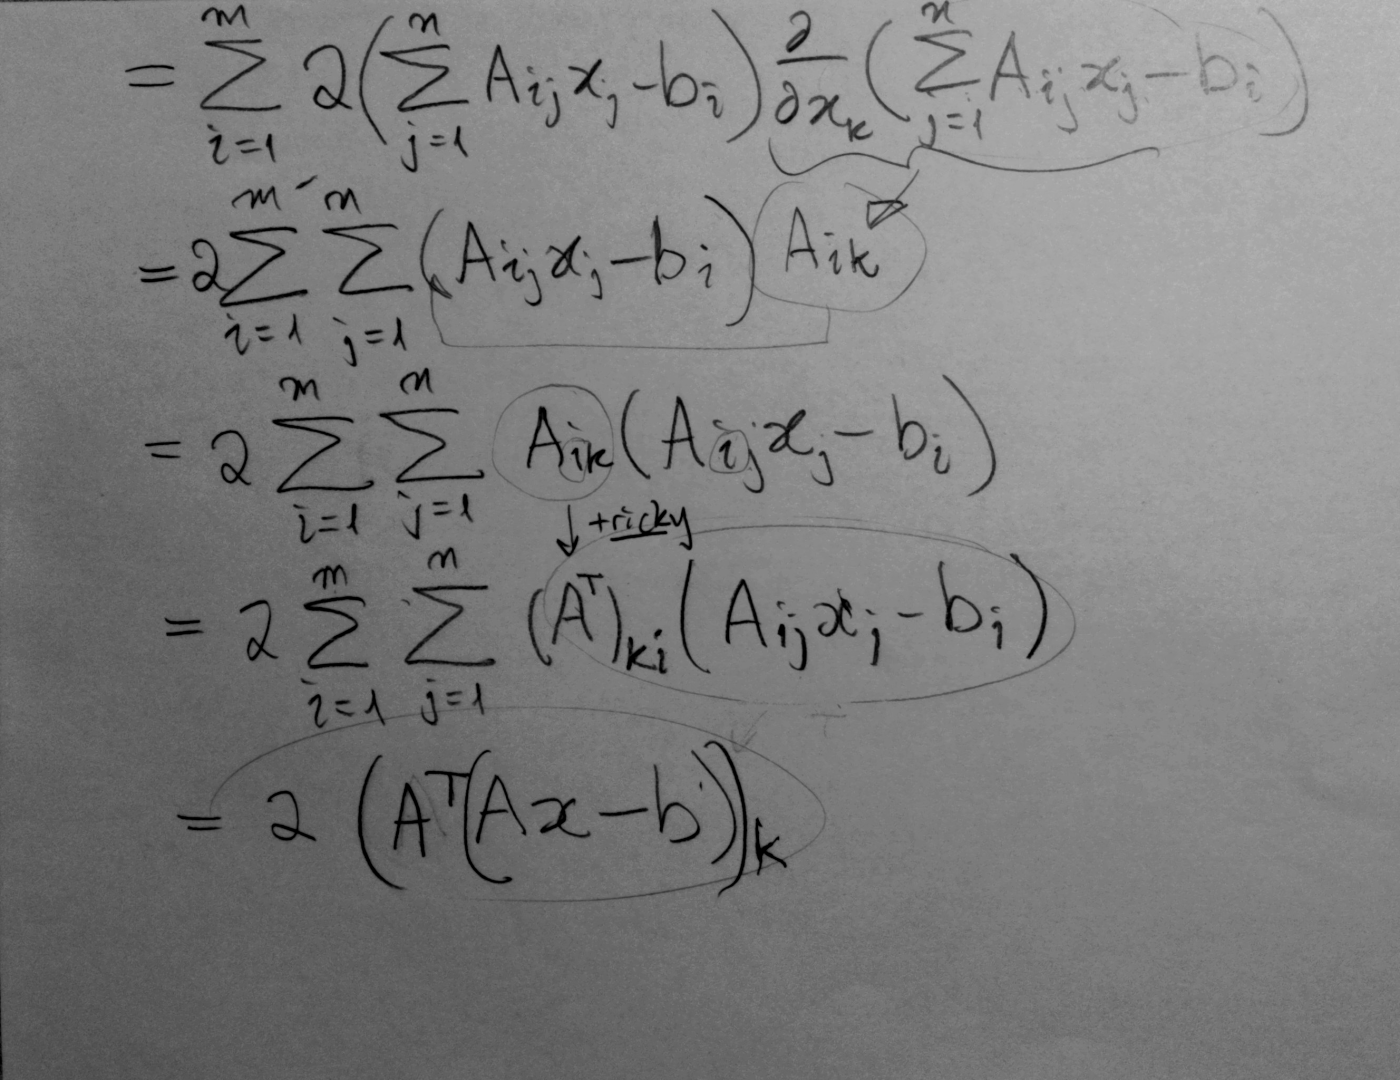 = \sum_{i=1}^{m} 2 ( \sum_{j=1}^{n} A_{ij} x_j - b_i ) \frac{∂}{∂x_k} ( \sum_{j=1}^{n} A_{ij} x_j - b_i )
= 2 \sum_{i=1}^{m} \sum_{j=1}^{n} ( A_{ij} x_j - b_i ) A_{ik}
= 2 \sum_{i=1}^{m} \sum_{j=1}^{n} A_{ik} ( A_{ij} x_j - b_i )
↓ tricky
= 2 \sum_{i=1}^{m} \sum_{j=1}^{n} (A^T)_{ki} ( A_{ij} x_j - b_i )
= 2 ( A^T ( A x - b ) )_k